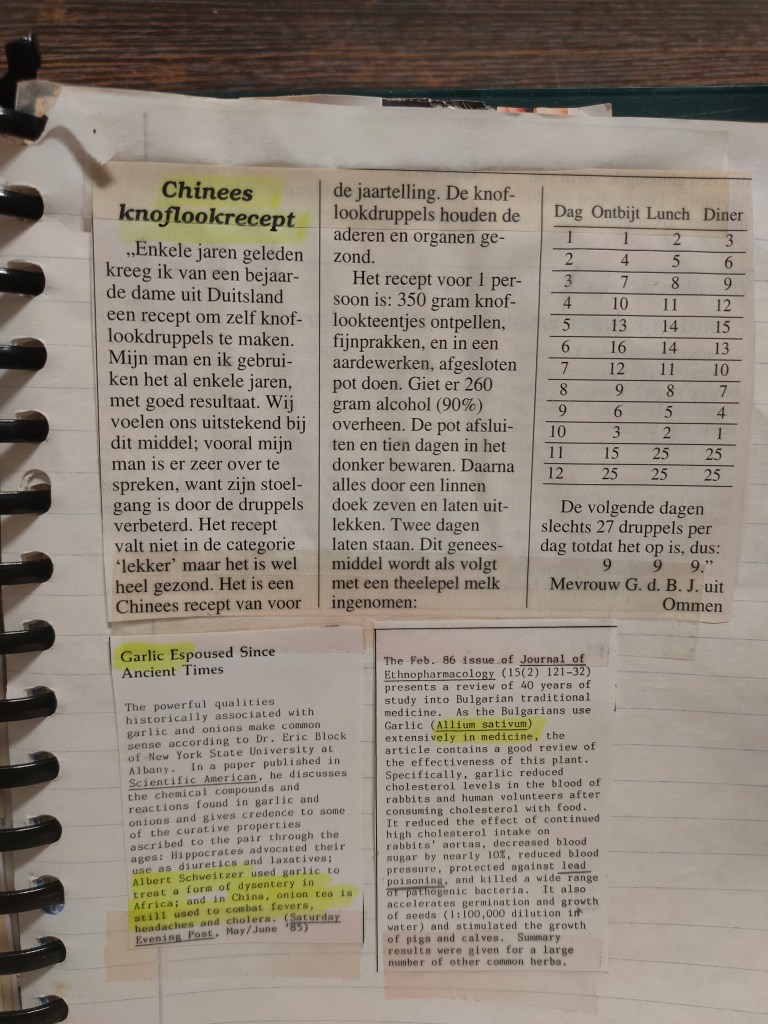 Chinees
knoflookrecept
„Enkele jaren geleden
kreeg ik van een bejaar-
de dame uit Duitsland
een recept om zelf knof-
lookdruppels te maken.
Mijn man en ik gebrui-
ken het al enkele jaren,
met goed resultaat. Wij
voelen ons uitstekend bij
dit middel; vooral mijn
man is er zeer over te
spreken, want zijn stoel-
gang is door de druppels
verbeterd. Het recept
valt niet in de categorie
‘lekker’ maar het is wel
heel gezond. Het is een
Chinees recept van voor
de jaartelling. De knof-
lookdruppels houden de
aderen en organen ge-
zond.
Het recept voor 1 per-
soon is: 350 gram knof-
lookteentjes ontpellen,
fijnprakken, en in een
aardewerken, afgesloten
pot doen. Giet er 260
gram alcohol (90%)
overheen. De pot afslui-
ten en tien dagen in het
donker bewaren. Daarna
alles door een linnen
doek zeven en laten uit-
lekken. Twee dagen
laten staan. Dit genees-
middel wordt als volgt
met een theelepel melk
ingenomen:
Dag Ontbijt Lunch Diner
1 1 2 3
2 4 5 6
3 7 8 9
4 10 11 12
5 13 14 15
6 16 14 13
7 12 11 10
8 9 8 7
9 6 5 4
10 3 2 1
11 15 25 25
12 25 25 25
De volgende dagen
slechts 27 druppels per
dag totdat het op is, dus:
9 9 9.”
Mevrouw G. d. B. J. uit
Ommen
Garlic Espoused Since
Ancient Times
The powerful qualities
historically associated with
garlic and onions make common
sense according to Dr. Eric Block
of New York State University at
Albany. In a paper published in
Scientific American, he discusses
the chemical compounds and
reactions found in garlic and
onions and gives credence to some
of the curative properties
ascribed to the pair through the
ages: Hippocrates advocated their
use as diuretics and laxatives;
Albert Schweitzer used garlic to
treat a form of dysentery in
Africa; and in China, onion tea is
still used to combat fevers,
headaches and cholera. (Saturday
Evening Post, May/June '85)
The Feb. 86 issue of Journal of
Ethnopharmacology (15(2) 121-32)
presents a review of 40 years of
study into Bulgarian traditional
medicine. As the Bulgarians use
Garlic (Allium sativum)
extensively in medicine, the
article contains a good review of
the effectiveness of this plant.
Specifically, garlic reduced
cholesterol levels in the blood of
rabbits and human volunteers after
consuming cholesterol with food.
It reduced the effect of continued
high cholesterol intake on
rabbits' aortas, decreased blood
sugar by nearly 10%, reduced blood
pressure, protected against lead
poisoning, and killed a wide range
of pathogenic bacteria. It also
accelerates germination and growth
of seeds (1:100,000 dilution in
water) and stimulated the growth
of pigs and calves. Summary
results were given for a large
number of other common herbs.